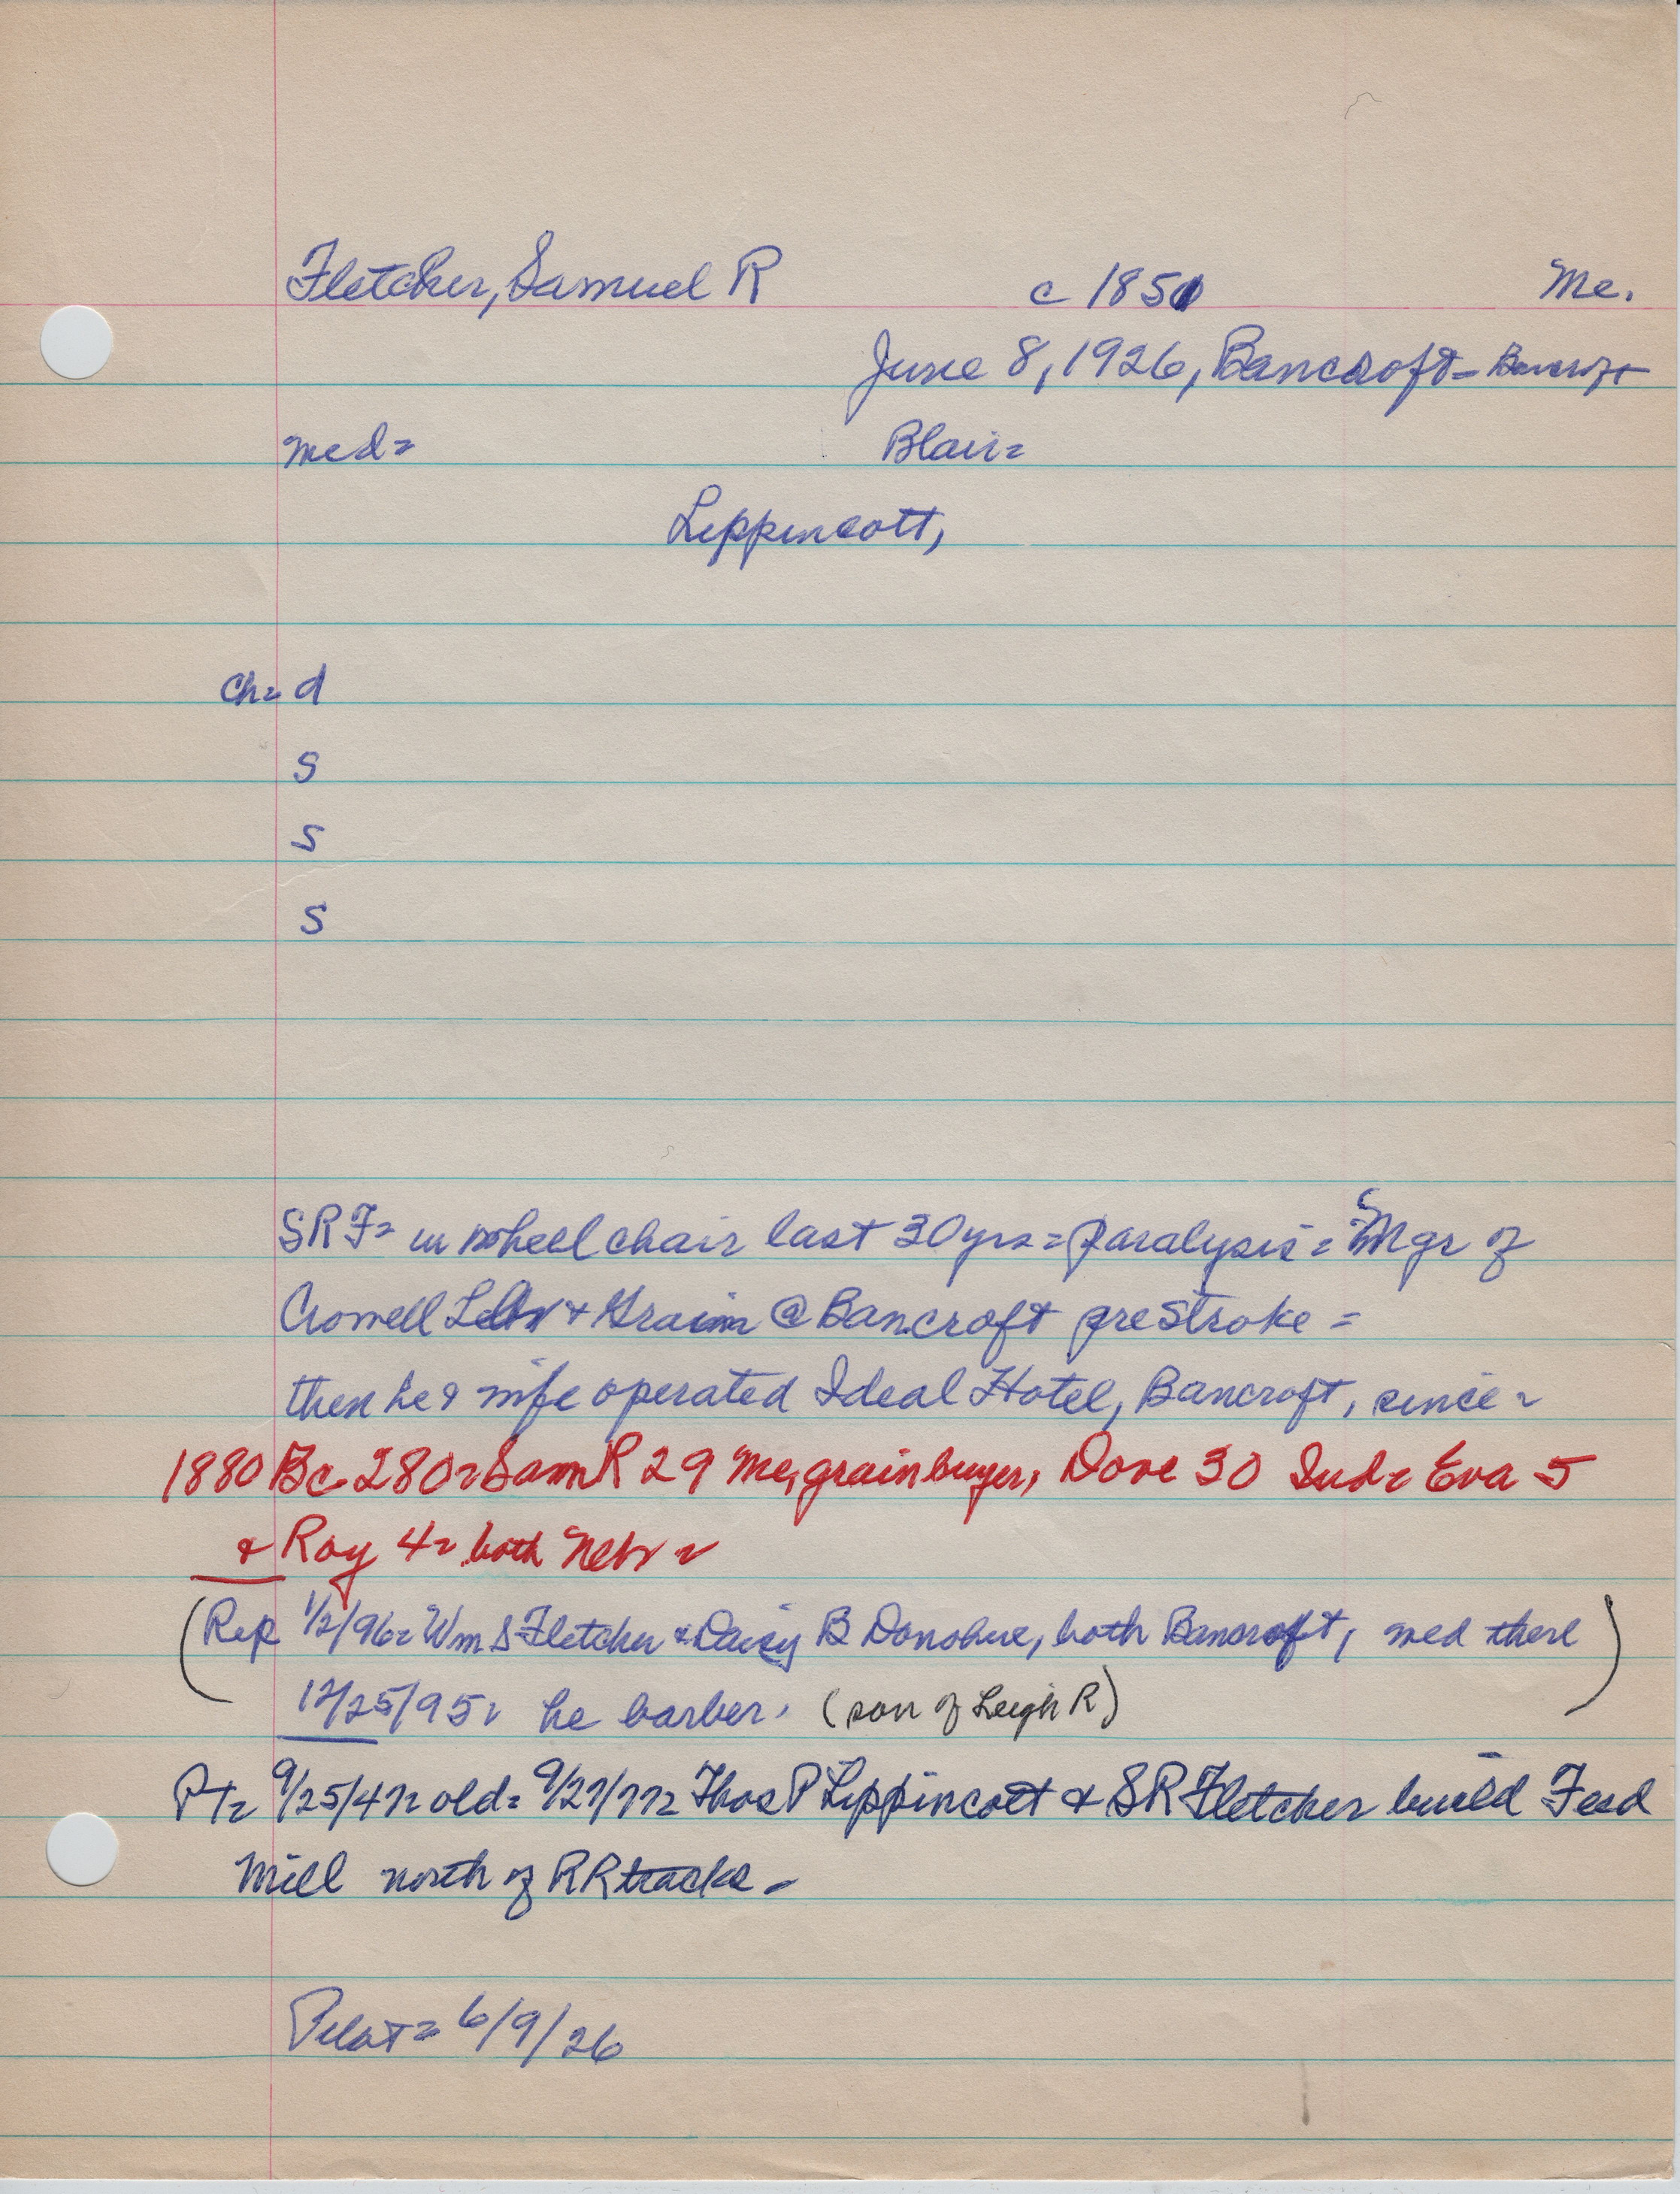 Fletcher, Samuel R c 1851 Me.
June 8, 1926, Bancroft = Bancroft
med = Blair =
Lippincott,
Ch = d
S
S
S
SRF = in wheel chair last 30 yrs = paralysis = Mgr of
Crowell Lbr + Grain @ Bancroft prestroke =
then he & wife operated Ideal Hotel, Bancroft, since =
1880 Bc 280 = Sam R 29 Me, grainbuyer, Dove 30 Ind = Eva 5
+ Roy 4 = both Nebr =
(Rep 1/2/96 = Wm S Fletcher + Daisy B Donohue, both Bancroft, med there
12/25/95 = he barber. (son of Leigh R)
PT = 9/25/47 = old = 9/27/77 = Thos P Lippincott & SR Fletcher build Feed
Mill north of RR tracks -
Pilot = 6/9/26